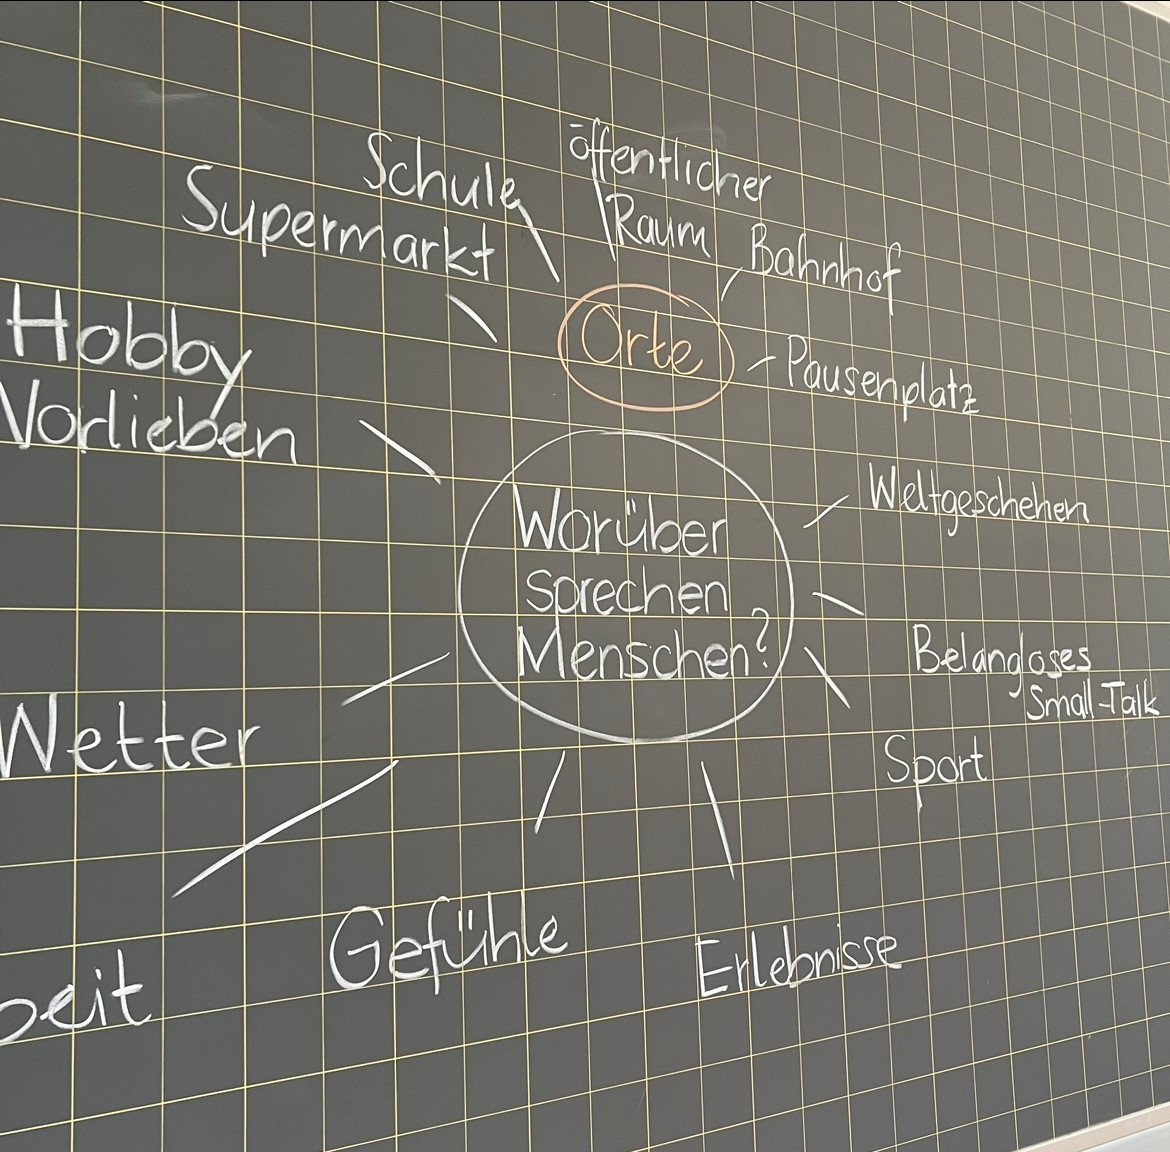 Schule
Supermarkt
öffentlicher
Raum
Bahnhof
Orte
Pausenplatz
Hobby
Vorlieben
Worüber
sprechen
Menschen?
Weltgeschehen
Belangloses
Small-Talk
Sport
Wetter
Gefühle
Erlebnisse
beit